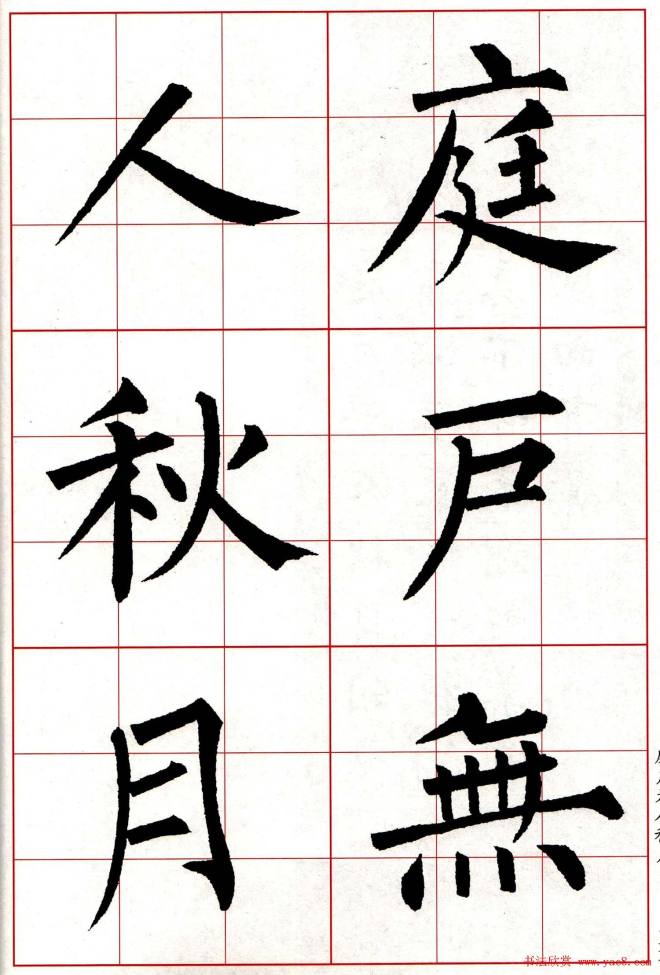 庭戶無
人秋月
书法欣赏 www.yac8.com